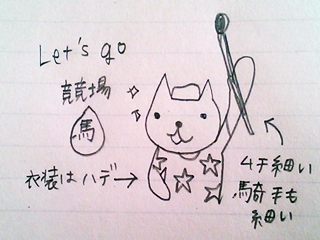 Let's go
競場
馬
衣装はハデ→
ムチ細い
騎手も
細い